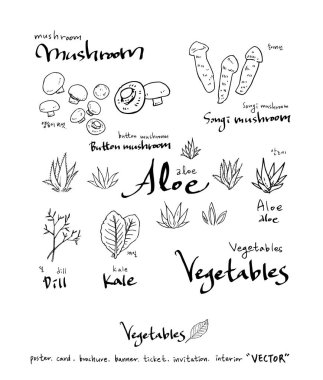 mushroom
Mushroom
송이버섯
Songi mushroom
Songi mushroom
양송이버섯
button mushroom
Button mushroom
알로에
aloe
Aloe
Aloe
aloe
딜
dill
Dill
케일
kale
Kale
Vegetables
Vegetables
Vegetables
poster. card. brochure. banner. ticket. invitation. interior "VECTOR"